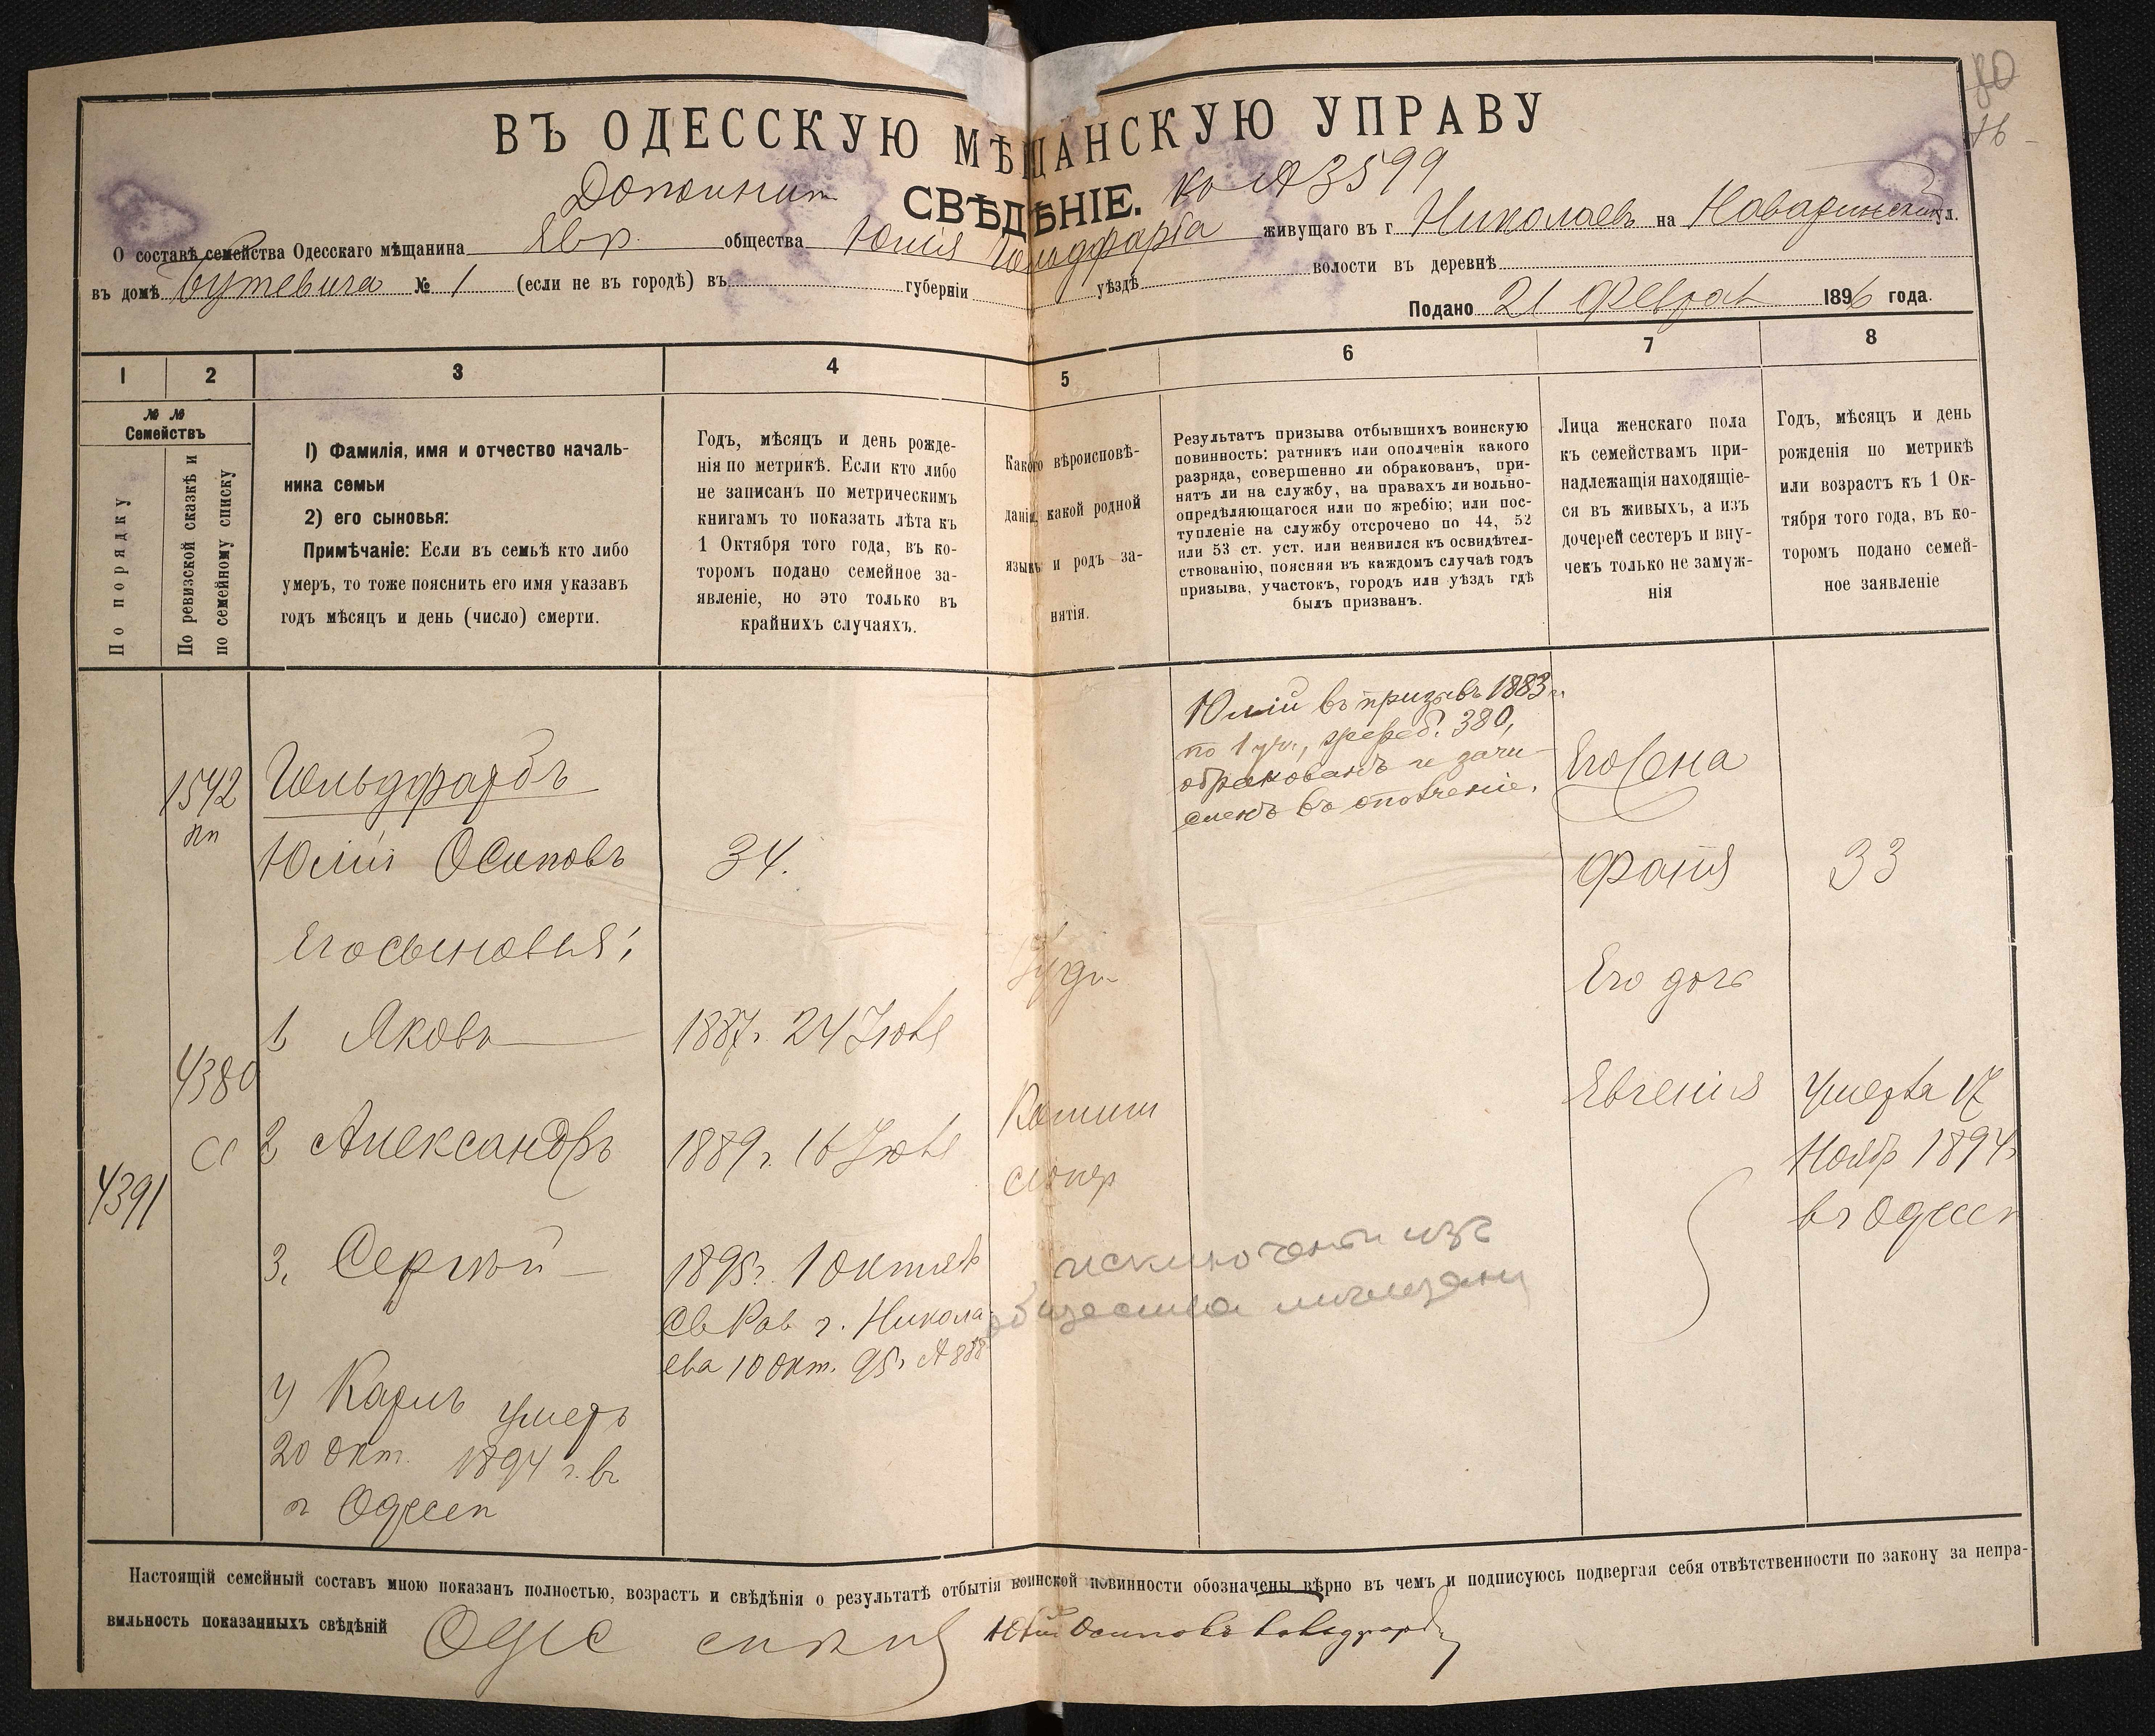 80
16
ВЪ ОДЕССКУЮ МѢЩАНСКУЮ УПРАВУ
Дополнит. СВѢДѢНІЕ. ко № 3599
О составѣ семейства Одесскаго мѣщанина Евр. общества Юлія Гольдфарба живущаго въ г Николаевъ на Наваринской ул.
въ домѣ Бутевича № 1 (если не въ городѣ) въ губерніи уѣздѣ волости въ деревнѣ
Подано 21 Феврал 1896 года.
1 2 3 4 5 6 7 8
№ № Семействъ
По порядку
По ревизской сказкѣ и
по семейному списку
1) Фамилія, имя и отчество началь-
ника семьи
2) его сыновья:
Примѣчаніе: Если въ семьѣ кто либо
умеръ, то тоже пояснить его имя указавъ
годъ мѣсяцъ и день (число) смерти.
Годъ, мѣсяцъ и день рожде-
нія по метрикѣ. Если кто либо
не записанъ по метрическимъ
книгамъ то показать лѣта къ
1 Октября того года, въ ко-
торомъ подано семейное за-
явленіе, но это только въ
крайнихъ случаяхъ.
Какого вѣроисповѣ-
данія, какой родной
языкъ и родъ за-
нятія.
Результатъ призыва отбывшихъ воинскую
повинность: ратникъ или ополченія какого
разряда, совершенно ли обракованъ, при-
нятъ ли на службу, на правахъ ли вольно-
опредѣляющагося или по жребію; или пос-
тупленіе на службу отсрочено по 44, 52
или 53 ст. уст. или неявился къ освидѣтел-
ствованію, поясняя въ каждомъ случаѣ годъ
призыва, участокъ, городъ или уѣздъ гдѣ
былъ призванъ.
Лица женскаго пола
къ семействамъ при-
надлежащія находящіе-
ся въ живыхъ, а изъ
дочерей сестеръ и вну-
чекъ только не замуж-
нія
Годъ, мѣсяцъ и день
рожденія по метрикѣ
или возрастъ къ 1 Ок-
тября того года, въ ко-
торомъ подано семей-
ное заявленіе
Юлій въ призывъ 1883 г.
по 1 уч., жереб. 380,
обракованъ и зачи-
сленъ въ ополченіе.
1542 Гольдфарбъ Его жена
Юлій Осиповъ 34. Фаня 33
Его сыновья: Іуд. Его дочь
1 Яковъ 1887 г. 24 Іюля
4380 Евгенія Умерла 17
2 Александръ 1889 г. 16 Іюля Ноябр 1894 г.
4391 въ Одессѣ
3. Сергѣй 1895 г. 1 Октяб
Св Рав г. Никола-
ева 10 Окт. 95 г. № 888
исключенъ изъ
общества мѣщанъ
4 Карлъ умеръ
20 Окт. 1894 г. въ
г Одессѣ
Настоящій семейный составъ мною показанъ полностью, возрастъ и свѣдѣнія о результатѣ отбытія воинской повинности обозначены вѣрно въ чемъ и подписуюсь подвергая себя отвѣтственности по закону за непра-
вильность показанныхъ свѣдѣній Юлій Осиповъ Гольдфарбъ